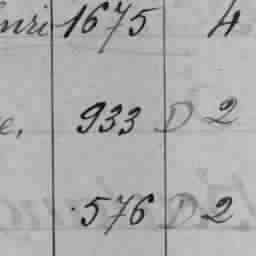 nri 1675 4
e, 933 D 2
576 D 2